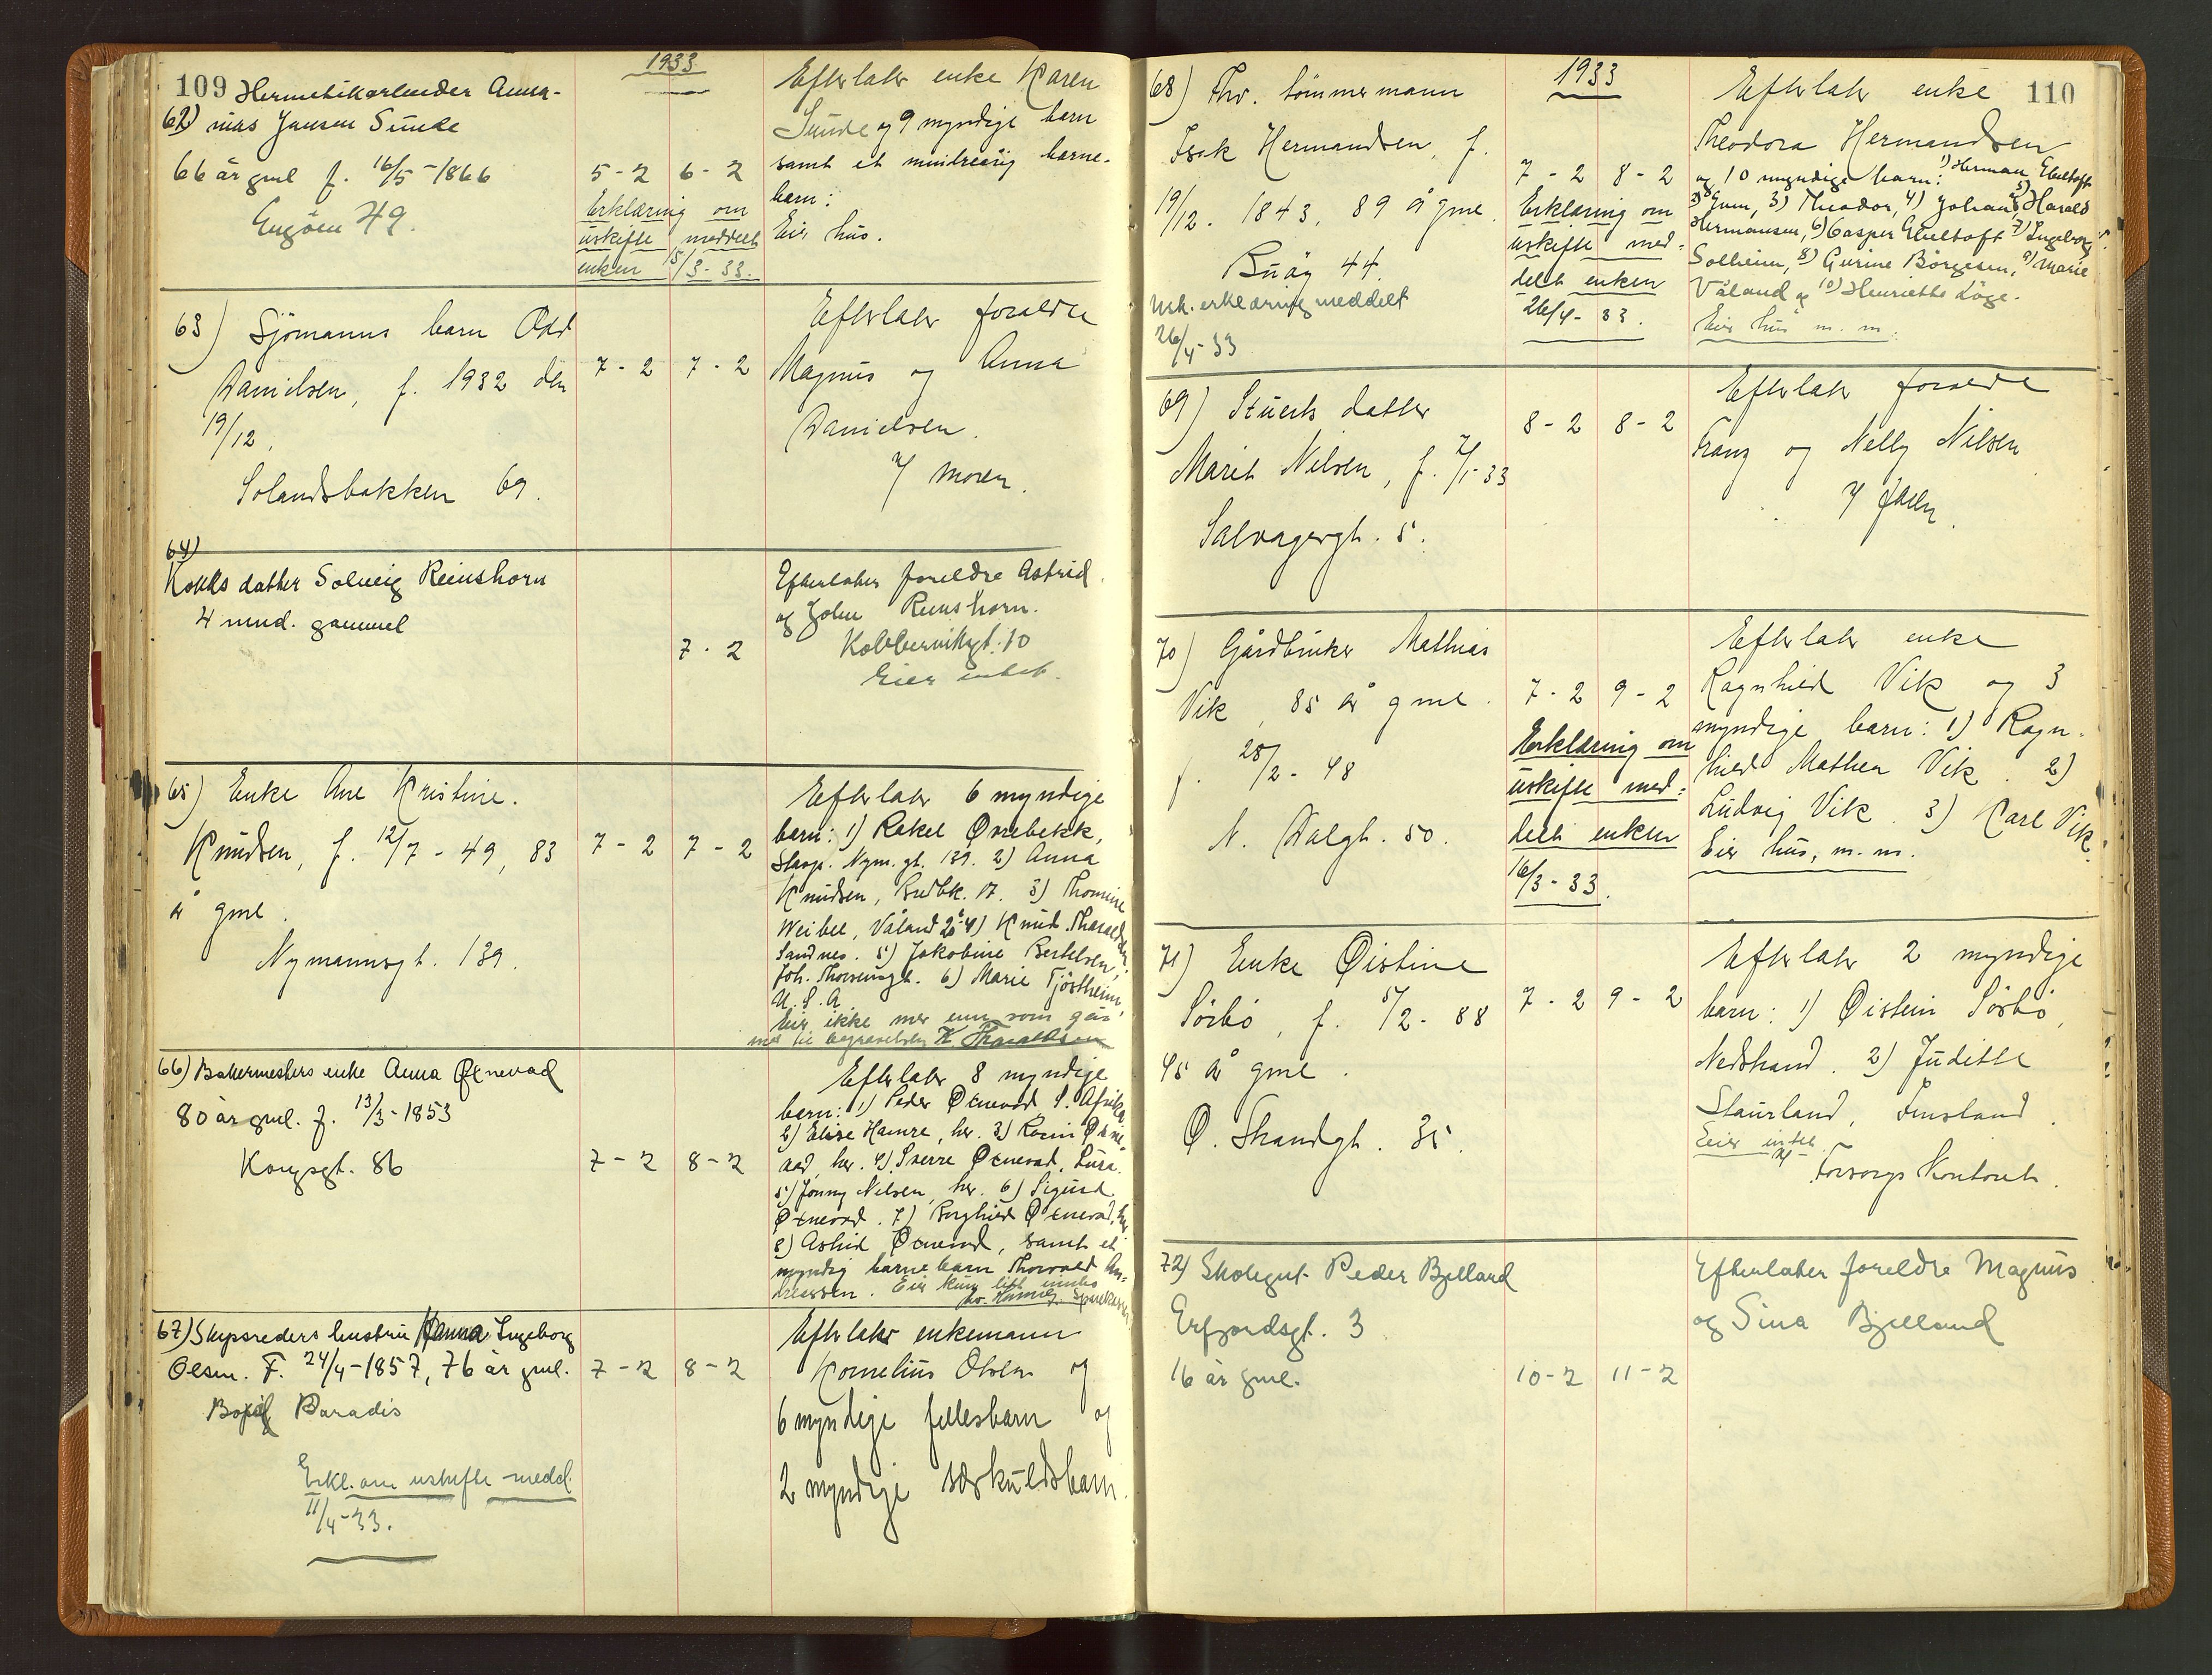 109
1933
Hermetikarbeider Anna-
62) nias Jansen Sunde
66 år gml f. 16/5-1866
Engöen 49.
5-2 6-2
Erklæring om
uskifte meddelt
enken 15/3-33.
Efterlater enke Karen
Sunde og 9 myndige barn
samt et mindreårig barne-
barn:
Eier hus.
63) Sjömanns barn Odd
Danielsen, f. 1932 den
19/12.
Solandsbakken 69.
7-2 7-2
Efterlater foreldre
Magnus og Anna
Danielsen.
Moren.
64)
Kokks datter Solveig Reinshorn
4 mnd. gammel
7-2
Efterlater foreldre Astrid
og John Reinshorn.
Kobbervikgt. 10
Eier intet.
65) Enke Ane Kristine
Knudsen, f. 12/7-49, 83
år gml.
Nymannsgt. 139.
7-2 7-2
Efterlater 6 myndige
barn: 1) Rakel Øvrebekk,
Nym. gt. 139. 2) Anna
Knudsen, Bredbk. 17. 3) Thomine
Weibel, Våland 20. 4) Knud Tharaldsen
Sandnes. 5) Jakobine Bertelsen,
Joh. Thorsensgt. 6) Marie Tjöstheim
U.S.A.
Eier ikke mer enn som går
med til begravelsen K. Tharaldsen
66) Bakermesters enke Anna Øxnevad
80 år gml. f. 13/3-1853
Kongsgt. 86
7-2 8-2
Efterlater 8 myndige
barn: 1) Peder Øxnevad S. Afrika
2) Elise Hamre, her. 3) Karin Øxne-
vad, her. 4) Sverre Øxnevad, Lura.
5) Jonny Nilsen, her. 6) Sigurd
Øxnevad. 7) Borghild Øxnevad, her
8) Astrid Øxnevad, samt et
myndig barnebarn Thorvald An-
dreassen. Eier kun litt innbo
67) Skipsreders hustru Hanna Ingeborg
Olsen. F. 24/4-1857, 76 år gml.
Paradis
Erkl. om uskifte medd.
11/4-33.
7-2 8-2
Efterlater enkemann
Kornelius Olsen og
6 myndige fellesbarn og
2 myndige særkuldsbarn.
110
1933
68) Fhv. tömmermann
Isak Hermandsen, f.
19/12. 1843, 89 år gml.
Buöy 44.
Usk. erklæring meddelt
26/4-33
7-2 8-2
Erklæring om
uskifte med-
delt enken
26/4-33.
Efterlater enke
Theodora Hermandsen
og 10 myndige barn: 1) Herman Ebeltoft
2) Gum, 3) Theodor, 4) Johan, 5) Harald
Hermansen, 6) Casper Ebeltoft 7) Ingeborg
Solheim, 8) Gurine Börgesen, 9) Marie
Våland og 10) Henriette Löge.
Eier hus m. m.
69) Stuerts datter
Marit Nilsen, f. 2/1-33
Salvagergt. 5.
8-2 8-2
Efterlater foreldre
Franz og Nelly Nilsen
faren.
70) Gårdbruker Mathias
Vik, 85 år gml.
f. 28/2-48
N. Dalgt. 50.
7-2 9-2
Erklæring om
uskifte med-
delt enken
16/3-33.
Efterlater enke
Ragnhild Vik og 3
myndige barn: 1) Ragn-
hild Mathea Vik. 2)
Ludvig Vik. 3) Karl Vik.
Eier hus, m. m.
71) Enke Øistine
Sörbö, f. 5/2-88
45 år gml.
Ø. Strandgt. 35.
7-2 9-2
Efterlater 2 myndige
barn: 1) Øistein Sörbö,
Nedstrand. 2) Judith
Staurland, Imsland.
Eier intet.
Forsorgskontoret.
72) Skolegut Peder Bjelland
Erfjordsgt. 3
16 år gml.
10-2 11-2
Efterlater foreldre Magnus
og Sina Bjelland